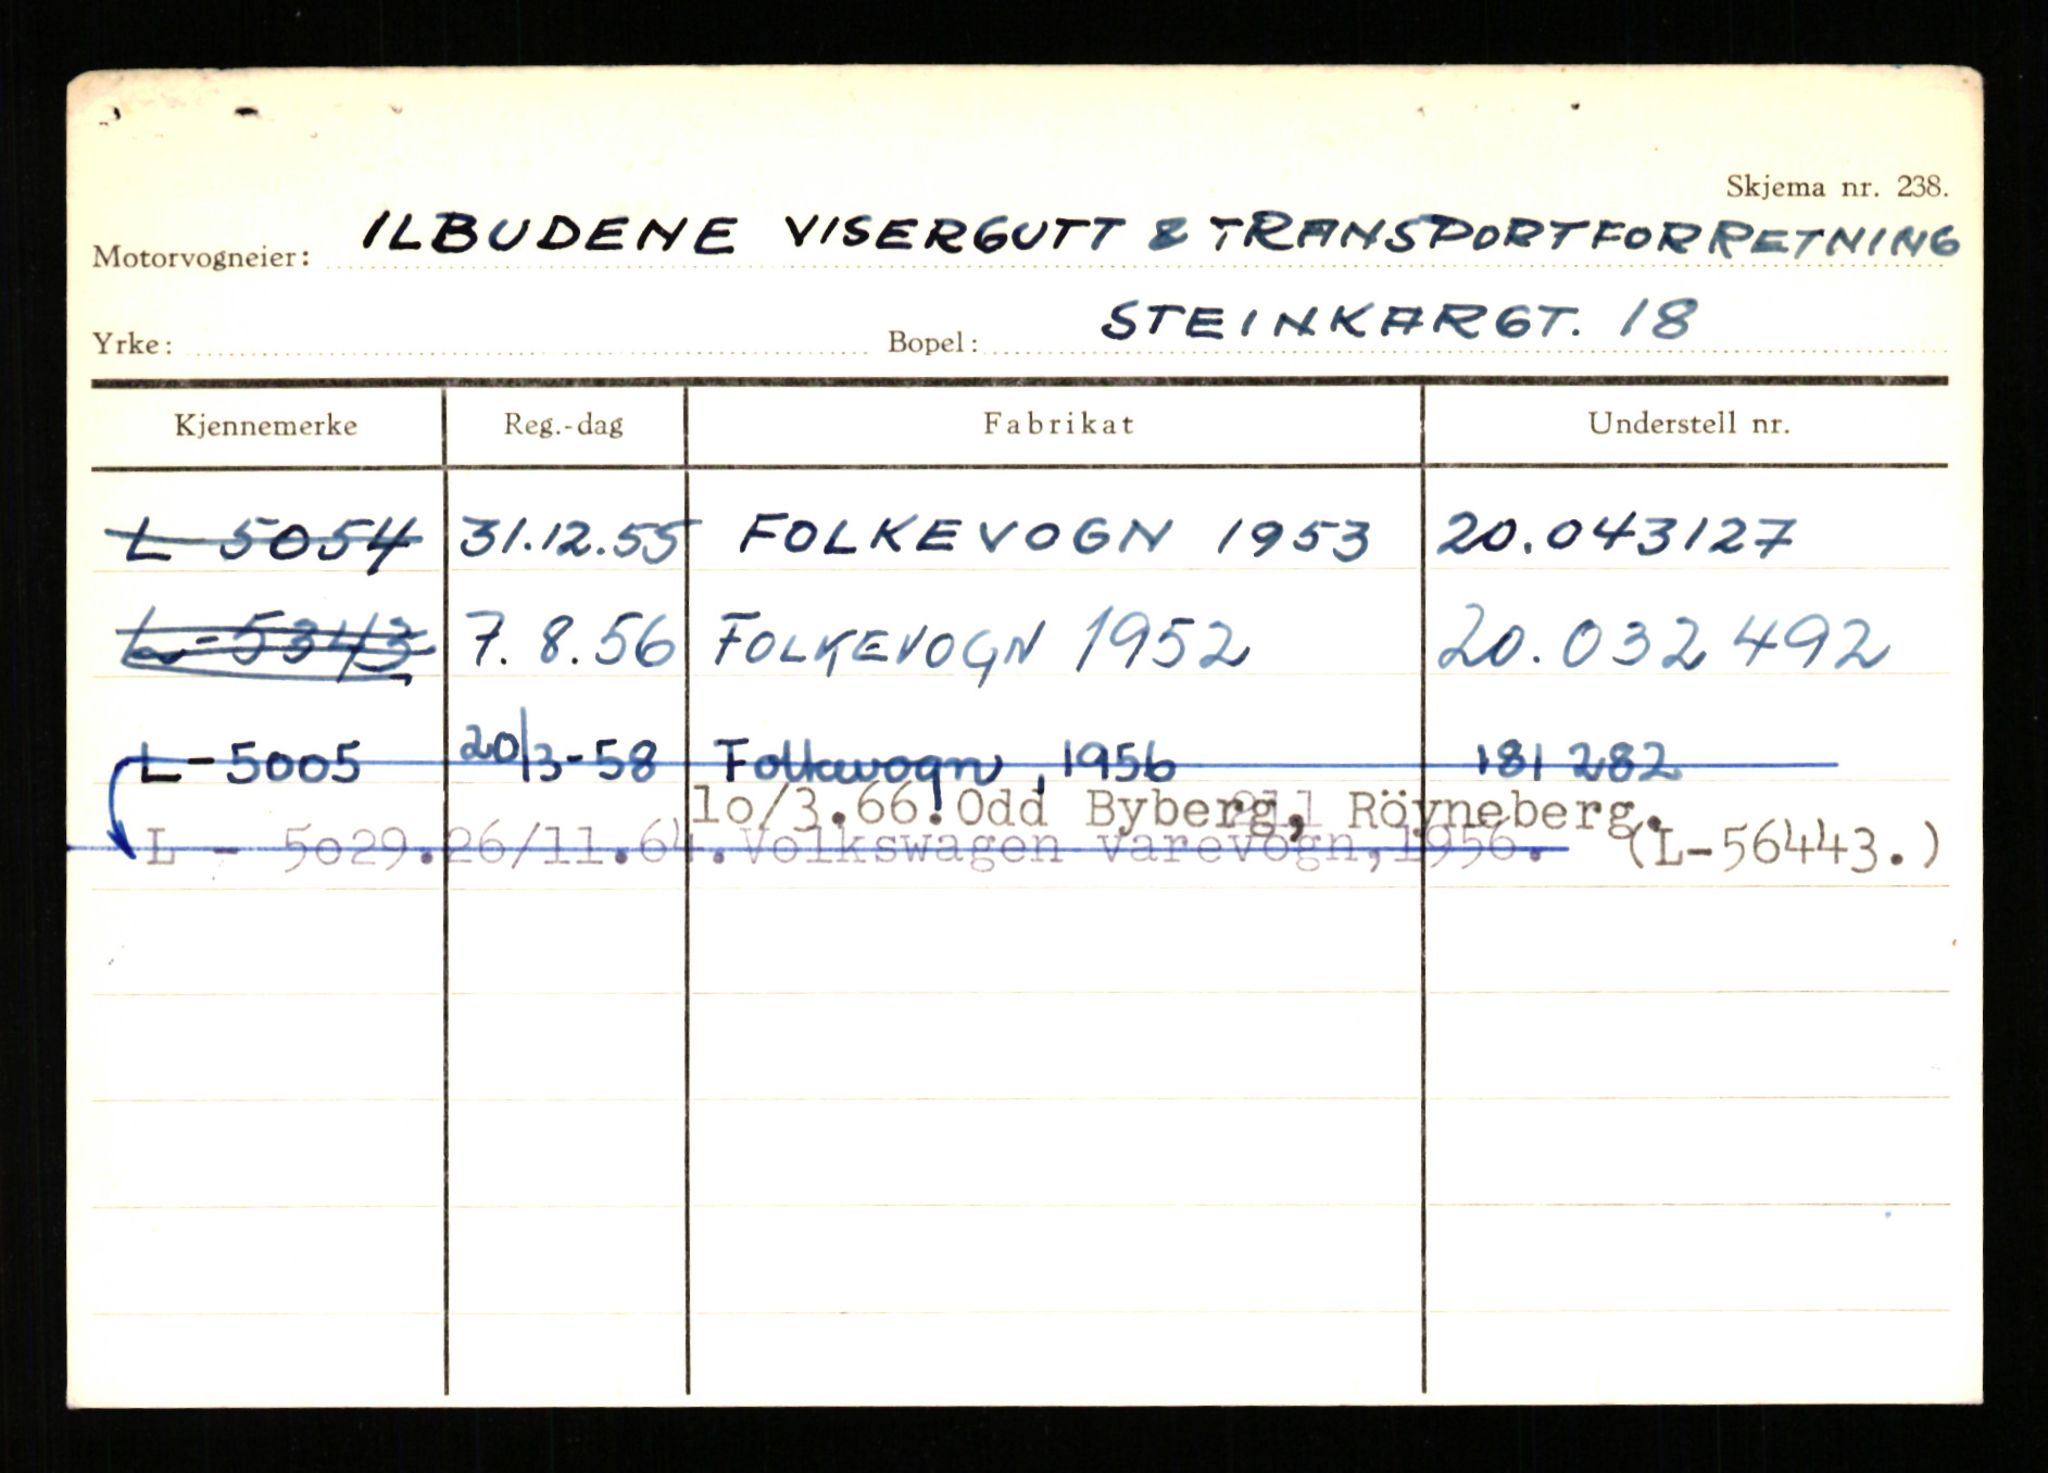 Skjema nr. 238.
Motorvogneier: ILBUDENE VISERGUTT & TRANSPORTFORRETNING
Yrke: Bopel: STEINKARGT. 18
Kjennemerke Reg.-dag Fabrikat Understell nr.
L 5054 31.12.55 FOLKEVOGN 1953 20.043127
L-5343 7.8.56 FOLKEVOGN 1952 20.032492
L-5005 20/3-58 Folkevogn, 1956 181 282
1o/3.66. Odd Byberg, Röyneberg.
L - 5o29. 26/11.64. Volkswagen varevogn, 1956. (L-56443.)